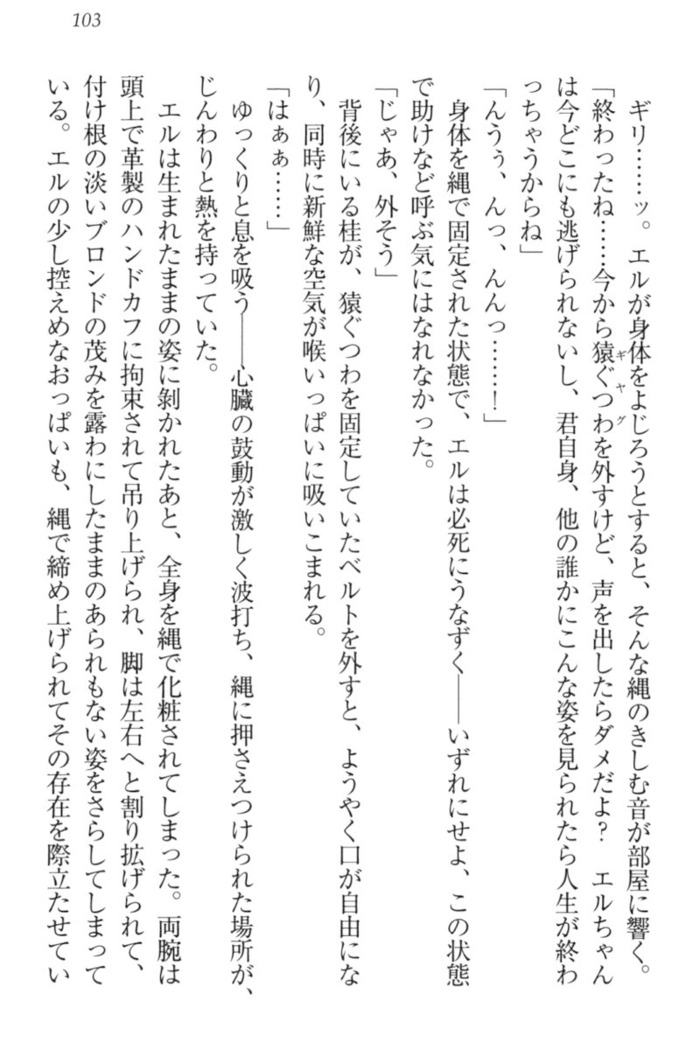 103
ギリ……ッ。エルが身体をよじろうとすると、そんな縄のきしむ音が部屋に響く。
「終わったね……今から猿ぐつわを外すけど、声を出したらダメだよ？　エルちゃん
ギャグ
は今どこにも逃げられないし、君自身、他の誰かにこんな姿を見られたら人生が終わ
っちゃうからね」
「んうぅ、んっ、んんっ……！」
身体を縄で固定された状態で、エルは必死にうなずく――いずれにせよ、この状態
で助けなど呼ぶ気にはなれなかった。
「じゃあ、外そう」
背後にいる桂が、猿ぐつわを固定していたベルトを外すと、ようやく口が自由にな
り、同時に新鮮な空気が喉いっぱいに吸いこまれる。
「はぁぁ……」
ゆっくりと息を吸う――心臓の鼓動が激しく波打ち、縄に押さえつけられた場所が、
じんわりと熱を持っていた。
エルは生まれたままの姿に剝かれたあと、全身を縄で化粧されてしまった。両腕は
頭上で革製のハンドカフに拘束されて吊り上げられ、脚は左右へと割り拡げられて、
付け根の淡いブロンドの茂みを露わにしたままのあられもない姿をさらしてしまって
いる。エルの少し控えめなおっぱいも、縄で締め上げられてその存在を際立たせてい